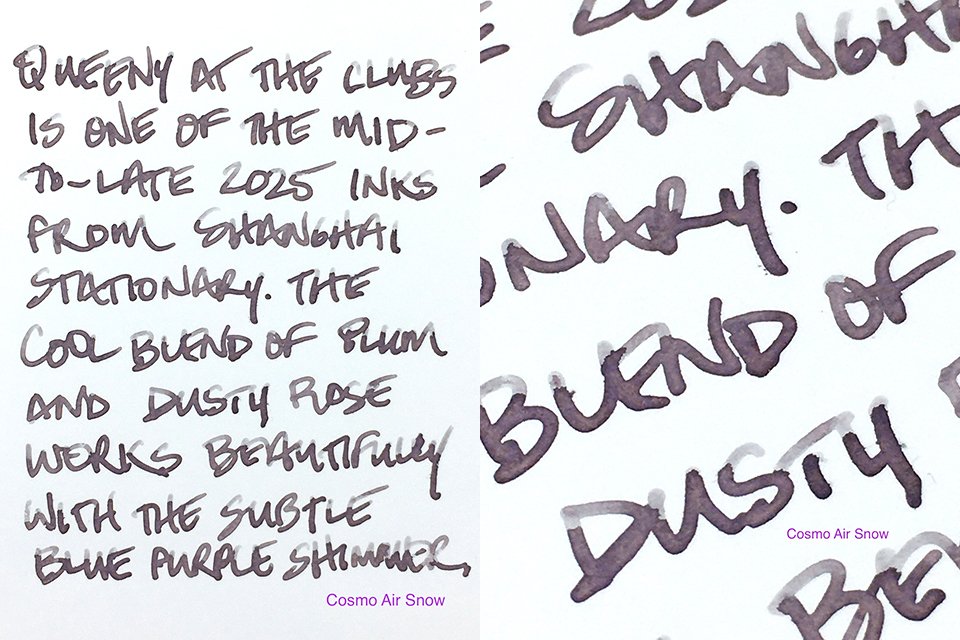 QUEENY AT THE CLUBS
IS ONE OF THE MID-
TO-LATE 2025 INKS
FROM SHANGHAI
STATIONARY. THE
COOL BLEND OF PLUM
AND DUSTY ROSE
WORKS BEAUTIFULLY
WITH THE SUBTLE
BLUE PURPLE SHIMMER,
Cosmo Air Snow
E 2025
SHANGHAI
ONARY. TH
BLEND OF
DUSTY
Cosmo Air Snow
BE